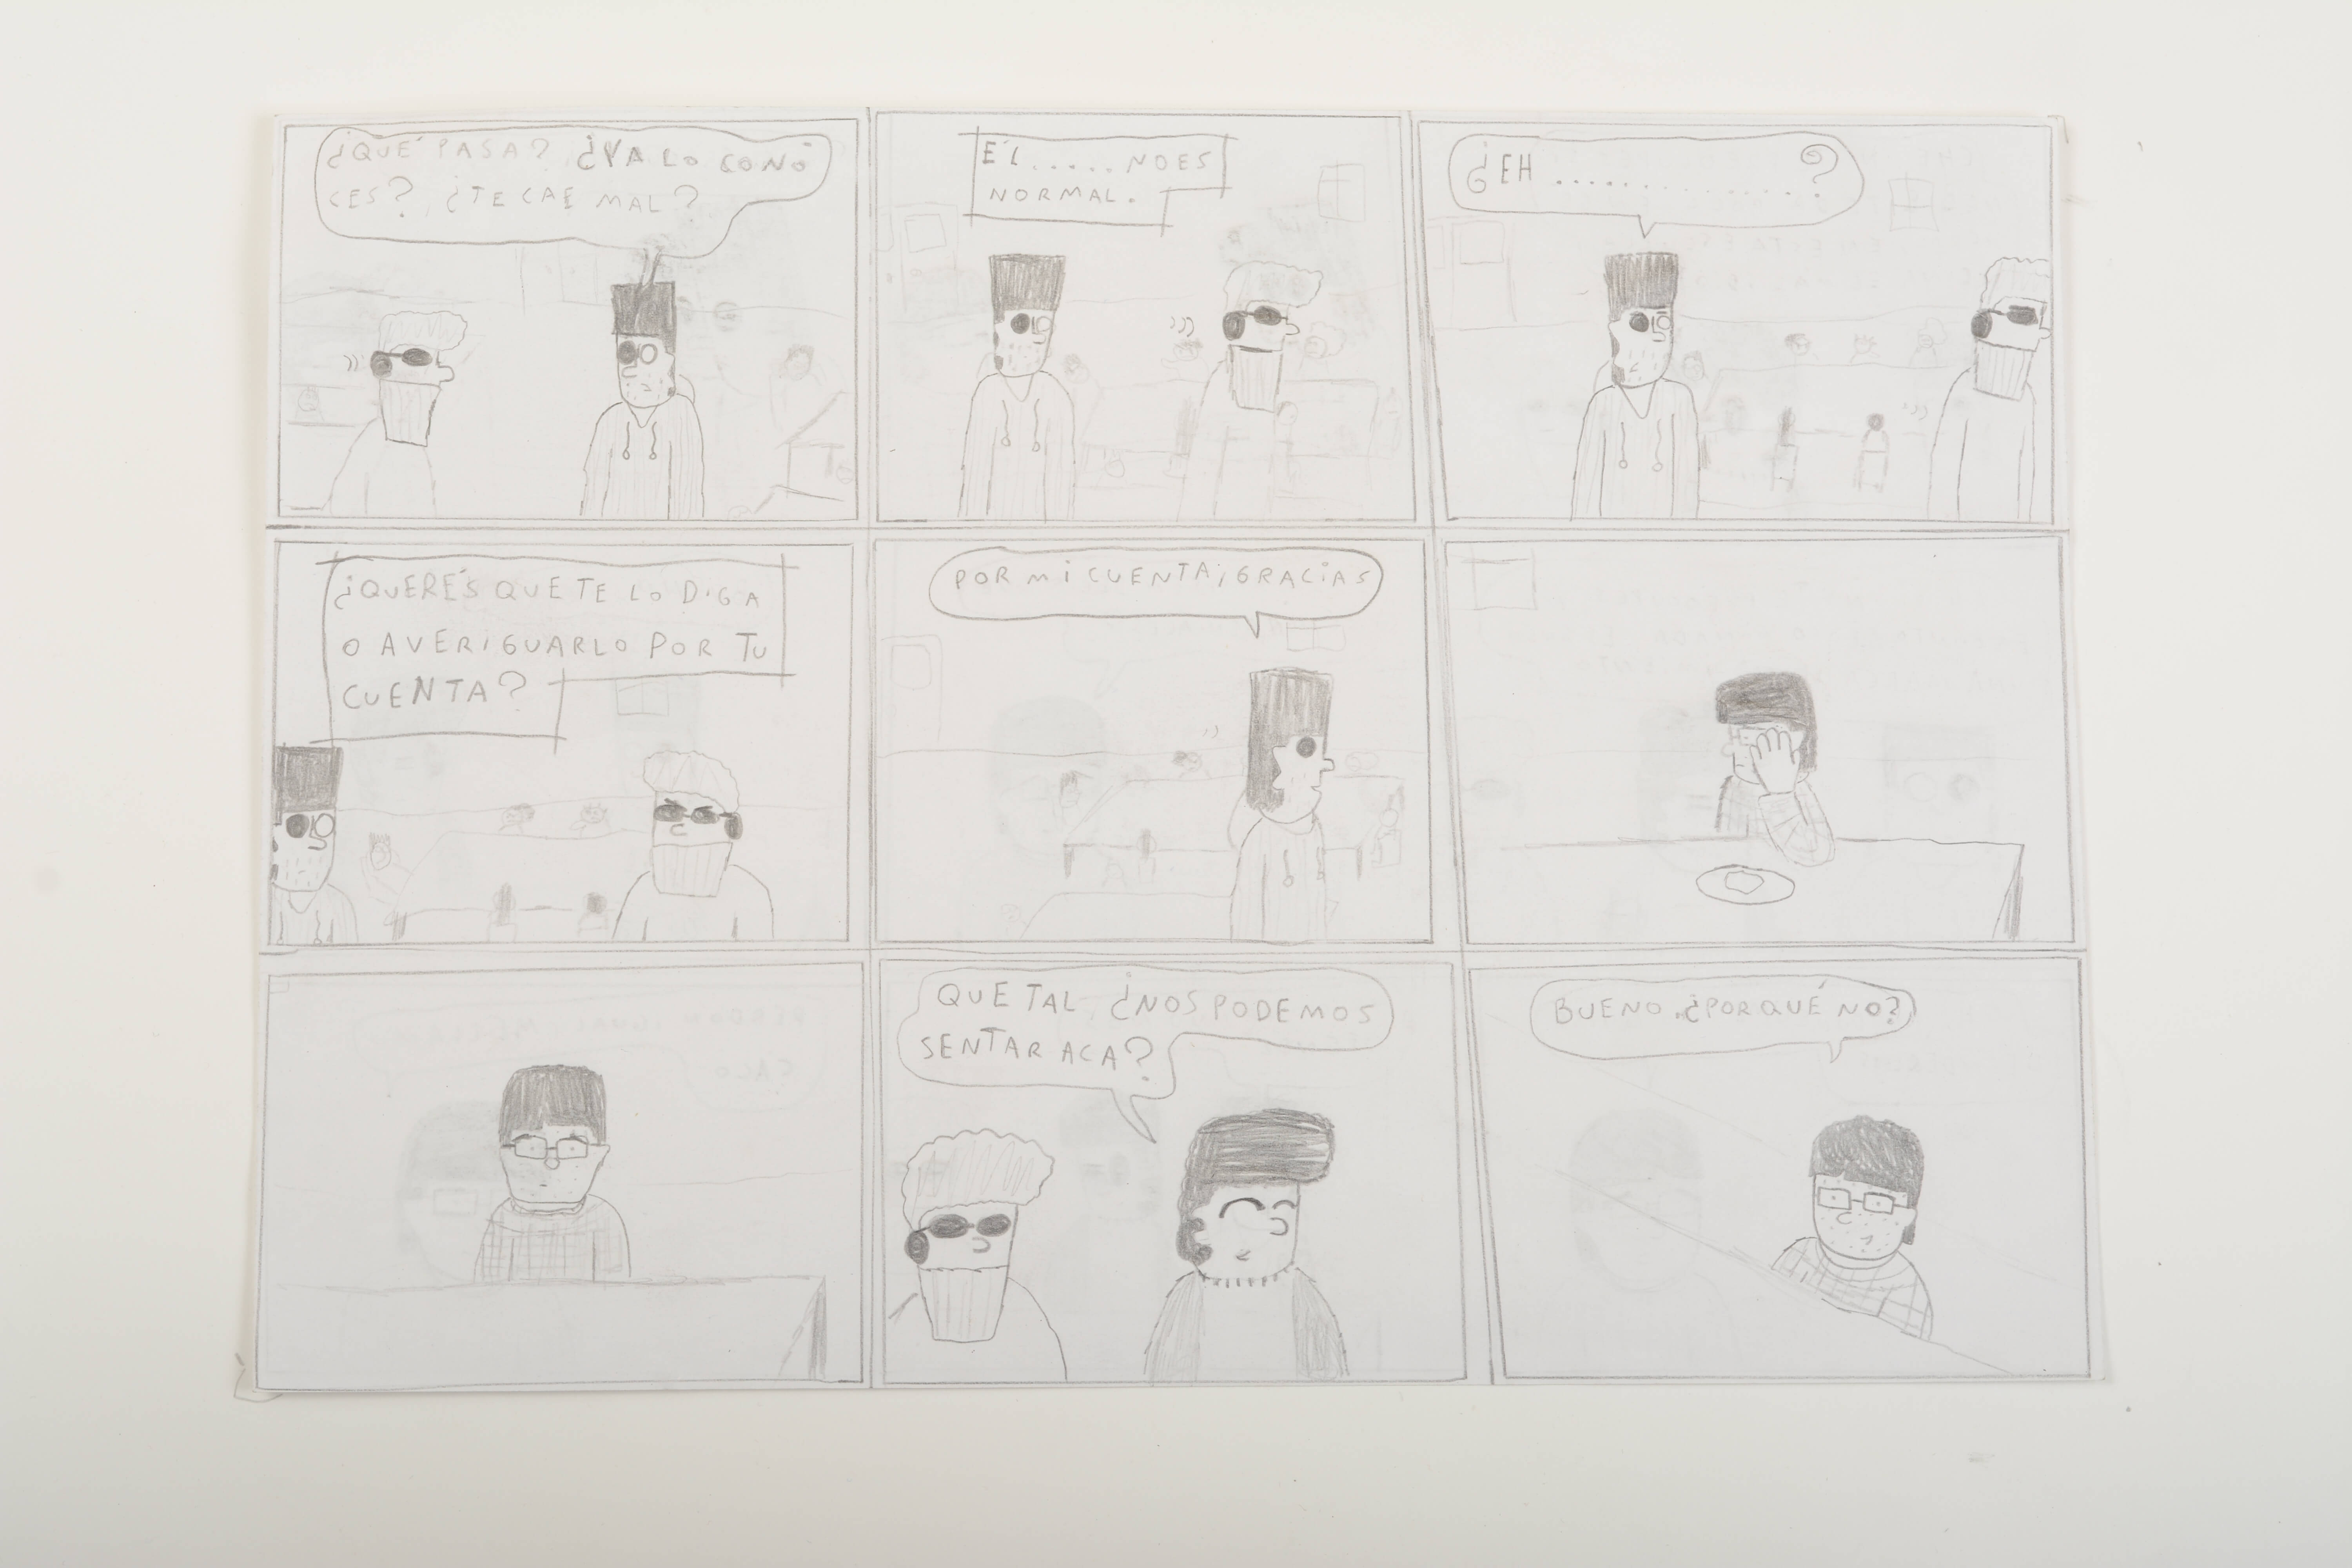 ¿QUÉ PASA? ¿YA LO CONO
CES? ¿TE CAE MAL?
ÉL ..... NO ES
NORMAL.
¿EH ..............?
¿QUERÉS QUE TE LO DIGA
O AVERIGUARLO POR TU
CUENTA?
POR MI CUENTA, GRACIAS
QUE TAL, ¿NOS PODEMOS
SENTAR ACA?
BUENO, ¿POR QUÉ NO?